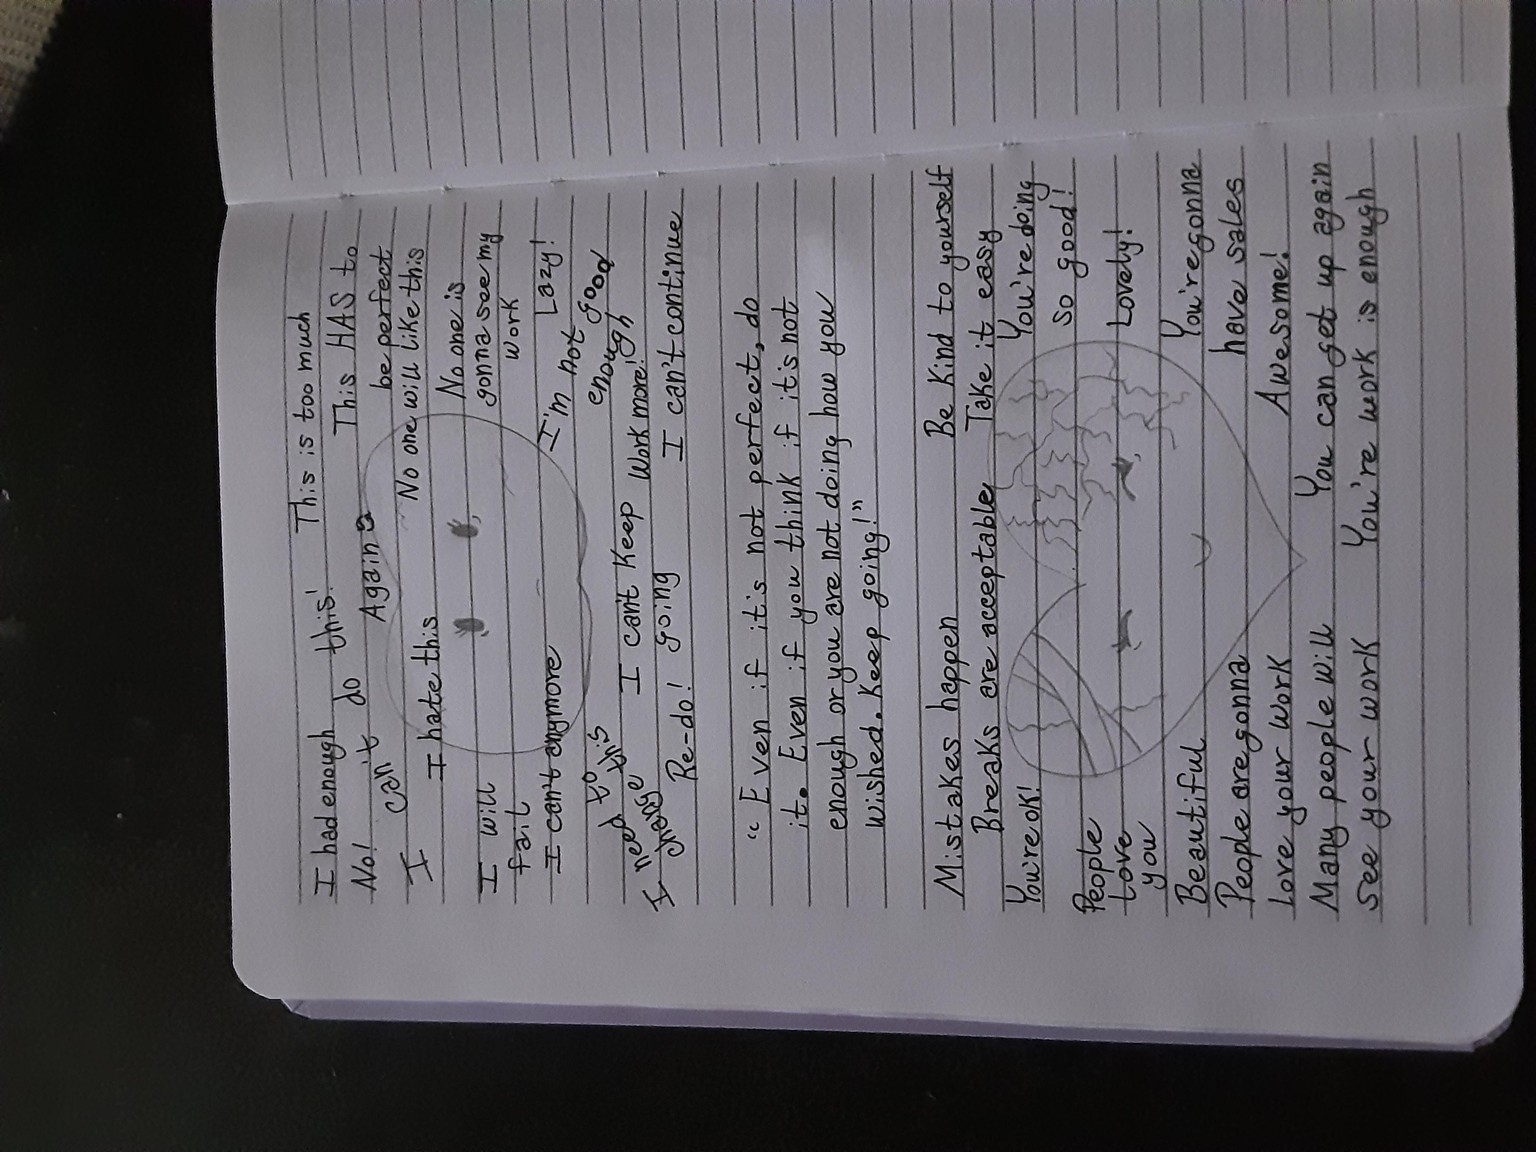 I had enough This is too much
No! do this! This HAS to
can't Again be perfect
I No one will like this
I hate this
No one is
I will gonna see my
fail work
Lazy!
I can't anymore I'm not
enough good
I need to I can't keep Work more!
change this going I can't continue
Re-do!
"Even if it's not perfect, do
it. Even if you think if it's not
enough or you are not doing how you
wished. Keep going!"
Mistakes happen Be kind to yourself
Breaks are acceptable Take it easy
You're ok! You're doing
so good!
People
Love Lovely!
you
Beautiful You're gonna
People are gonna have sales
Love your work Awesome!
Many people will You can get up again
see your work You're work is enough